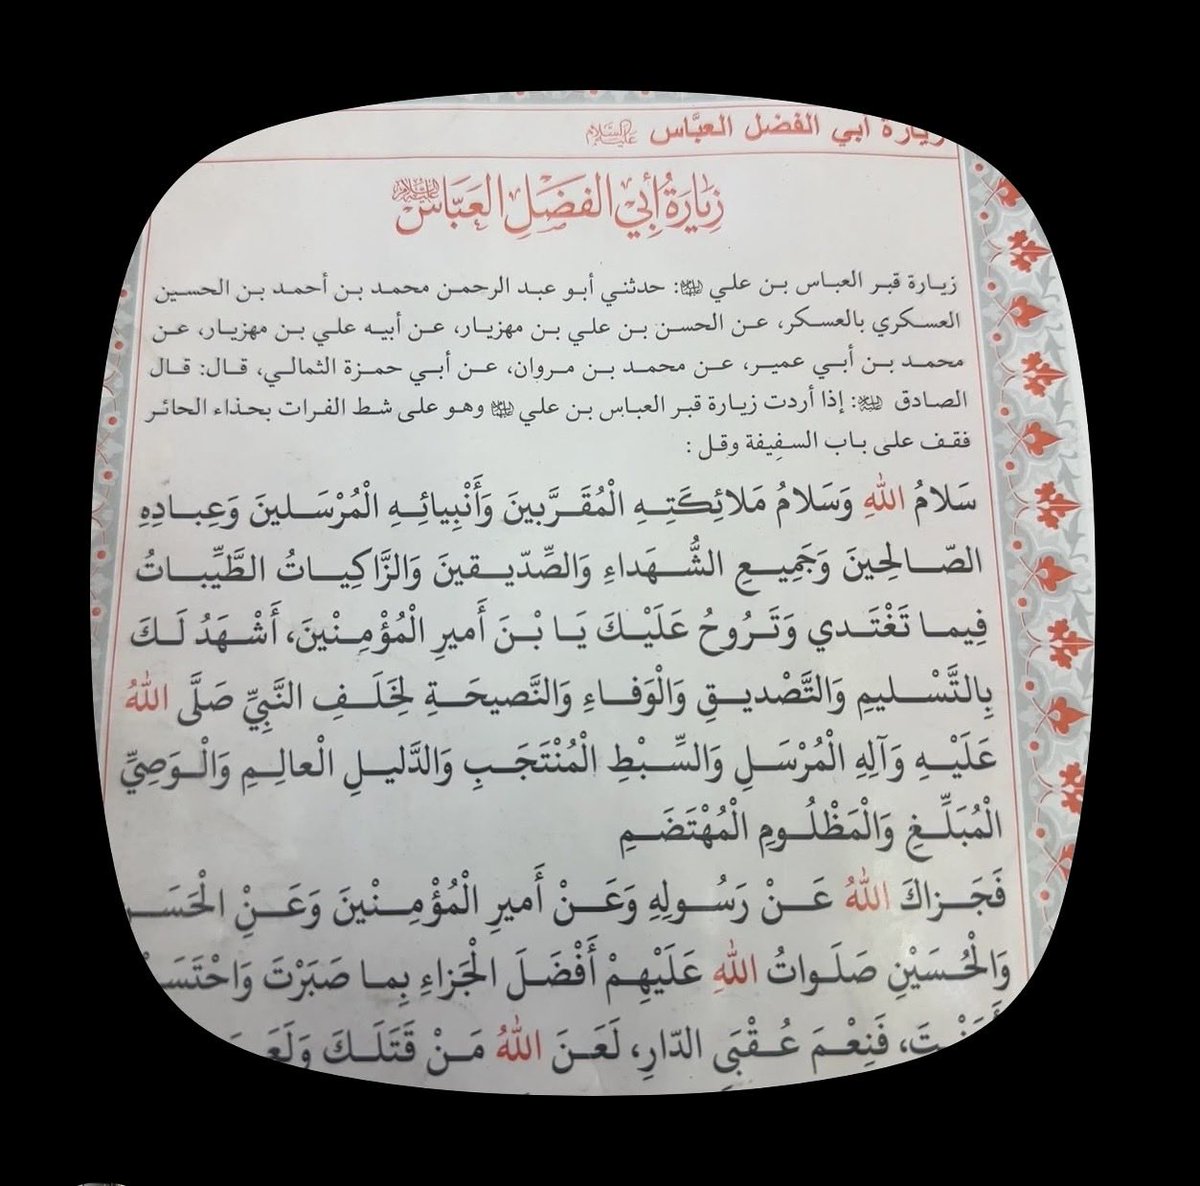 زيارة أبي الفضل العبَّاس عليه السلام
زِيَارَةُ أَبِي الفَضْلِ العَبَّاسِ عليه السلام
زيارة قبر العباس بن علي عليه السلام: حدثني أبو عبد الرحمن محمد بن أحمد بن الحسين
العسكري بالعسكر، عن الحسن بن علي بن مهزيار، عن أبيه علي بن مهزيار، عن
محمد بن أبي عمير، عن محمد بن مروان، عن أبي حمزة الثمالي، قال: قال
الصادق عليه السلام: إذا أردت زيارة قبر العباس بن علي عليه السلام وهو على شط الفرات بحذاء الحائر
فقف على باب السفيفة وقل:
سَلامُ اللهِ وَسَلامُ مَلائِكَتِهِ الْمُقَرَّبينَ وَأَنْبِيائِهِ الْمُرْسَلينَ وَعِبادِهِ
الصّالِحِينَ وَجَمِيعِ الشُّهَداءِ وَالصِّدّيقينَ وَالزَّاكِياتُ الطَّيِّباتُ
فِيما تَغْتَدي وَتَرُوحُ عَلَيْكَ يَا بْنَ أَميرِ الْمُؤْمِنْينَ، أَشْهَدُ لَكَ
بِالتَّسْليمِ وَالتَّصْديقِ وَالْوَفاءِ وَالنَّصيحَةِ لِخَلَفِ النَّبِيِّ صَلَّى اللهُ
عَلَيْهِ وَآلِهِ الْمُرْسَلِ وَالسِّبْطِ الْمُنْتَجَبِ وَالدَّليلِ الْعالِمِ وَالْوَصِيِّ
الْمُبَلِّغِ وَالْمَظْلُومِ الْمُهْتَضَمِ
فَجَزاكَ اللهُ عَنْ رَسُولِهِ وَعَنْ أَميرِ الْمُؤْمِنْينَ وَعَنِ
وَالْحُسَيْنِ صَلَواتُ اللهِ عَلَيْهِمْ أَفْضَلَ الْجَزاءِ بِما صَبَرْتَ
فَنِعْمَ عُقْبَى الدّارِ، لَعَنَ اللهُ مَنْ قَتَلَكَ